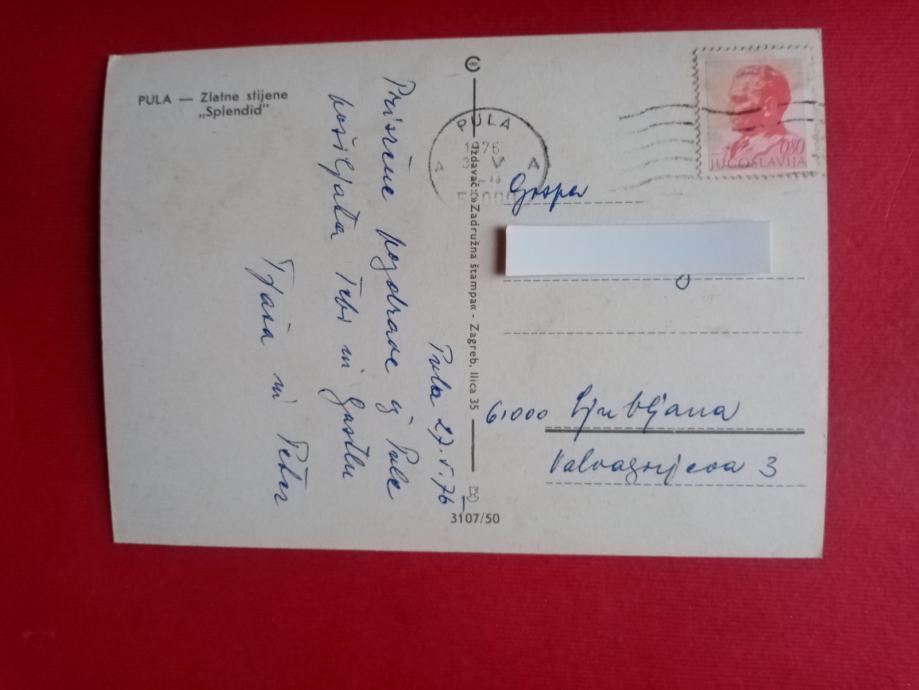 PULA — Zlatne stijene
„Splendid"
Pula 27. V. 76
Prisrčne pozdrave iz Pule
pošiljata Tebi in
Tjaša in Peter
»Izdavačka Zadružna štampa« - Zagreb, Ilica 35
3107/50
PULA
1976
V
A
A
52000
0.80
JUGOSLAVIJA
Gospa
61000 Ljubljana
Valvasorjeva 3